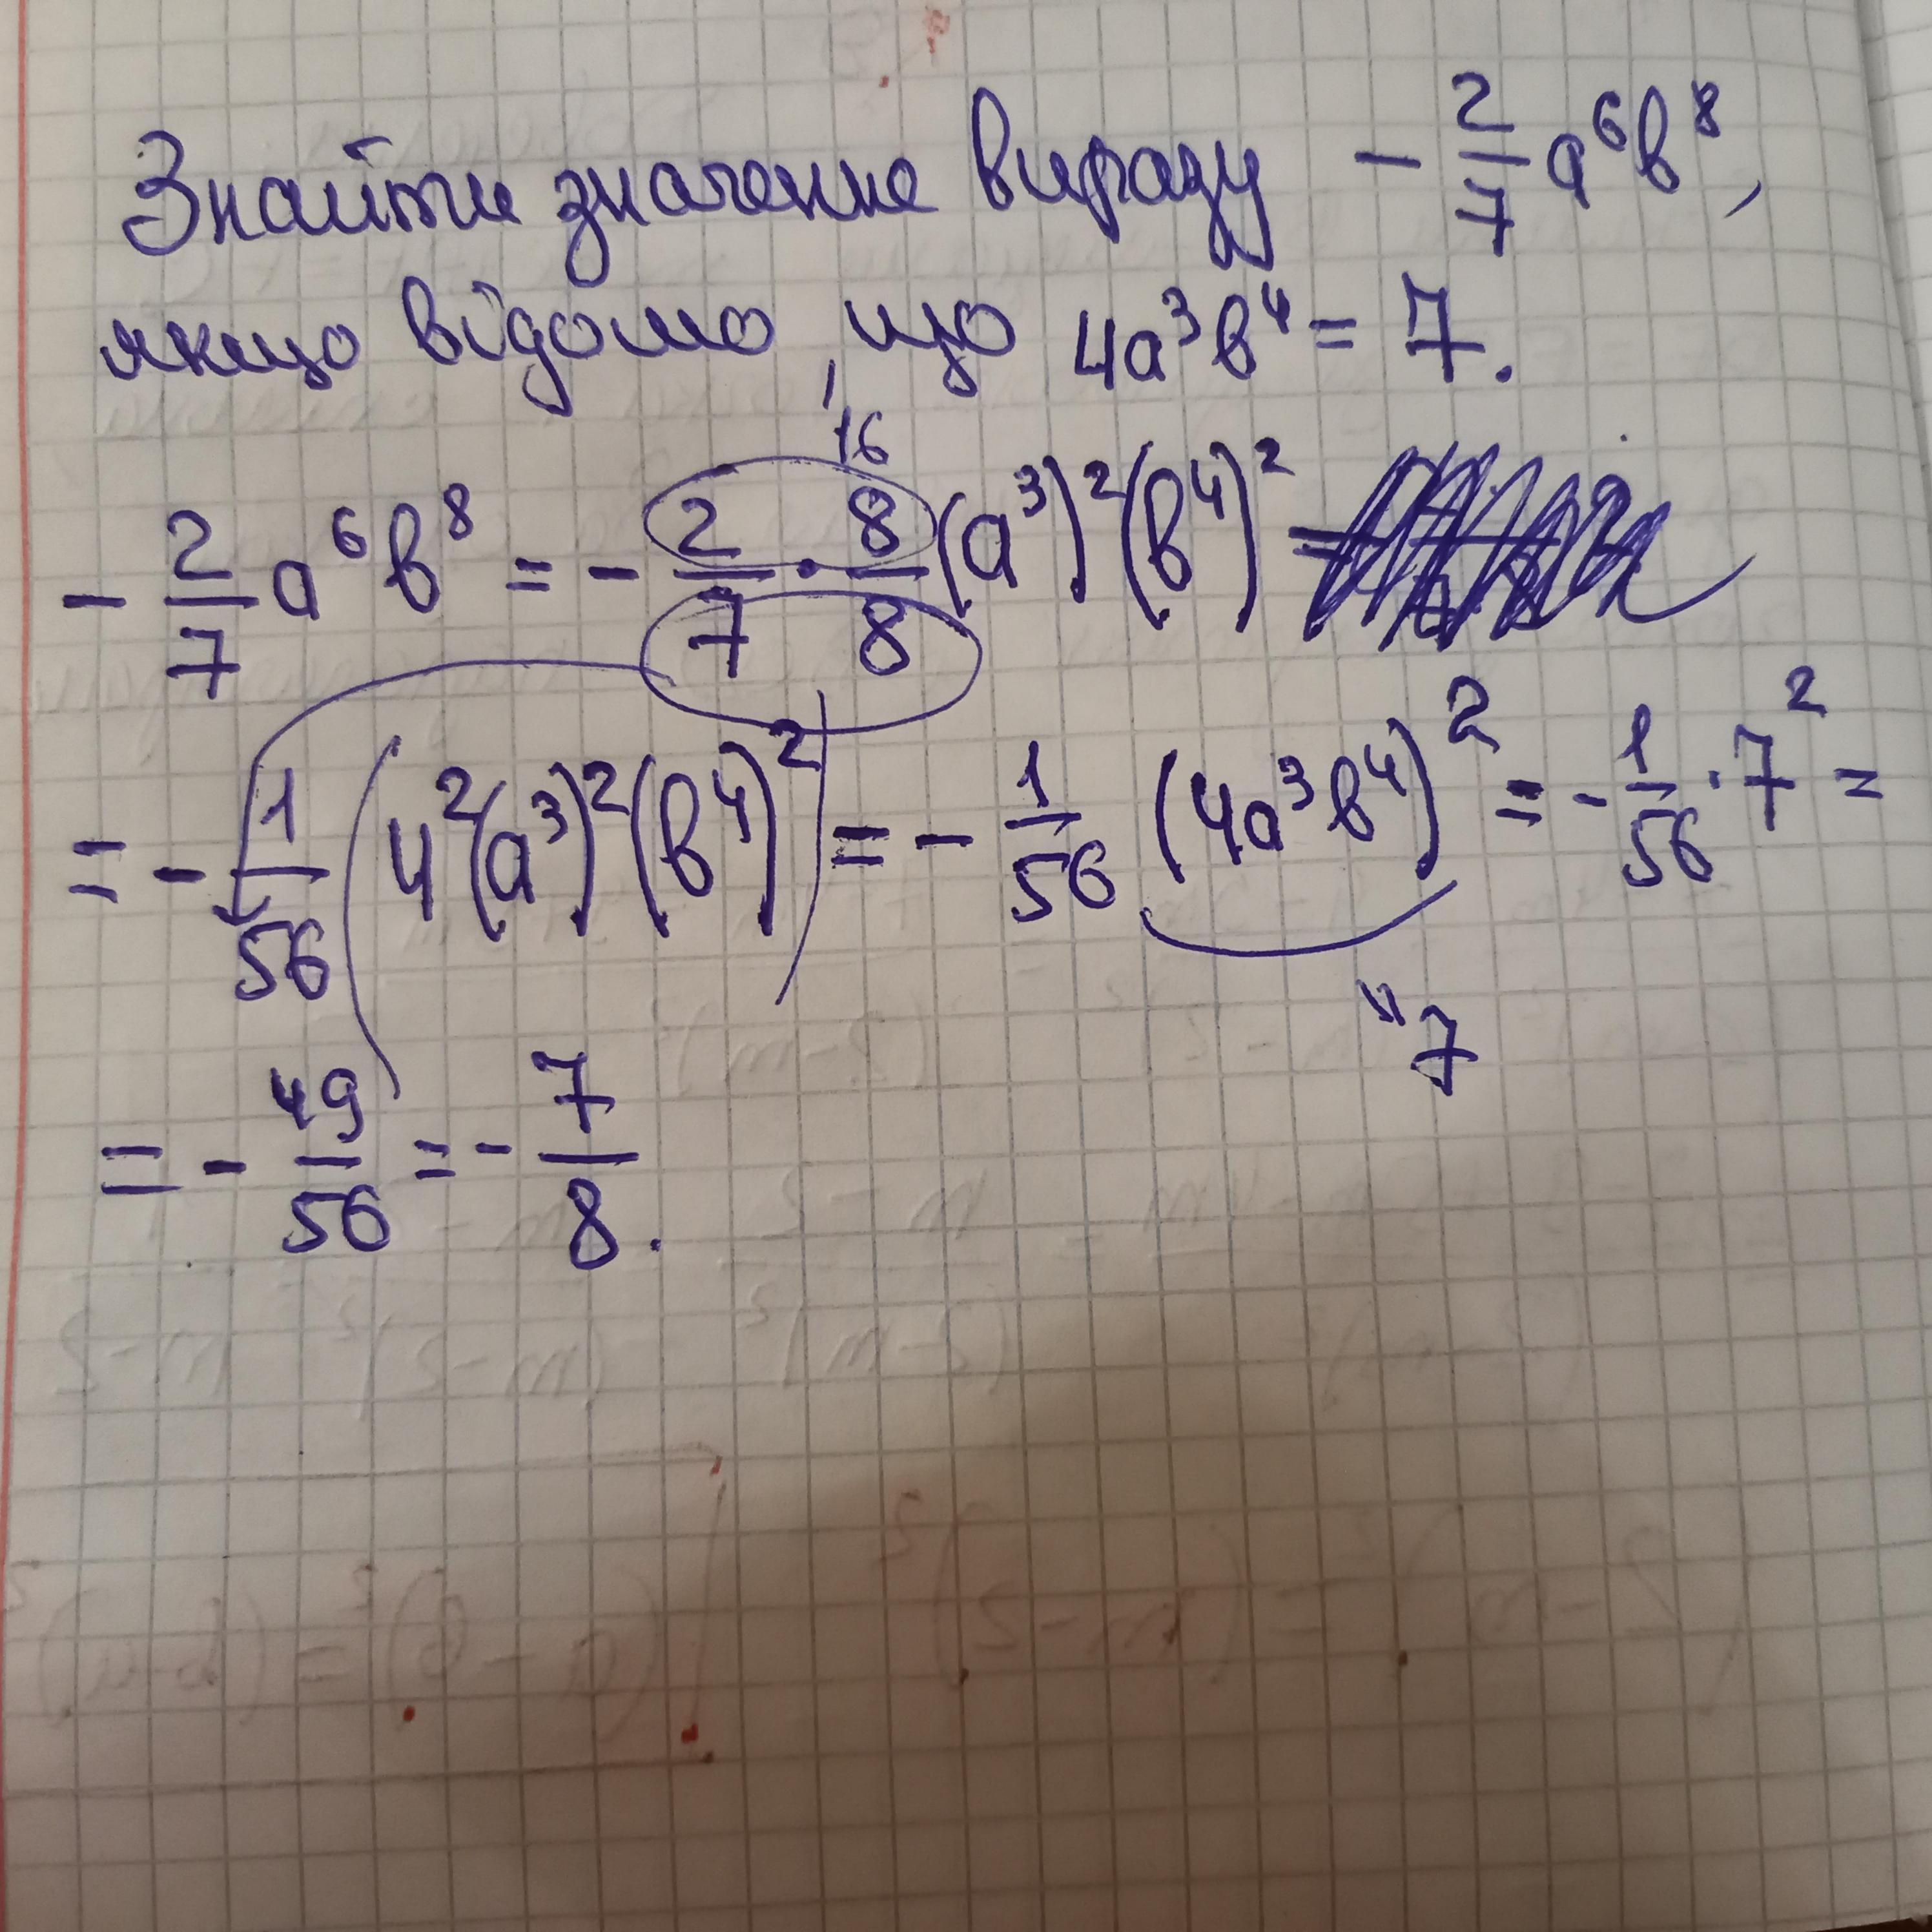 Знайти значення виразу - 2/7 a⁶b⁸,
якщо відомо, що 4a³b⁴ = 7.
16
- 2/7 a⁶b⁸ = - 2/7 · 8/8 (a³)²(b⁴)²
= - 1/56 (4²(a³)²(b⁴)²) = - 1/56 (4a³b⁴)² = - 1/56 · 7² =
" 7
= - 49/56 = - 7/8.